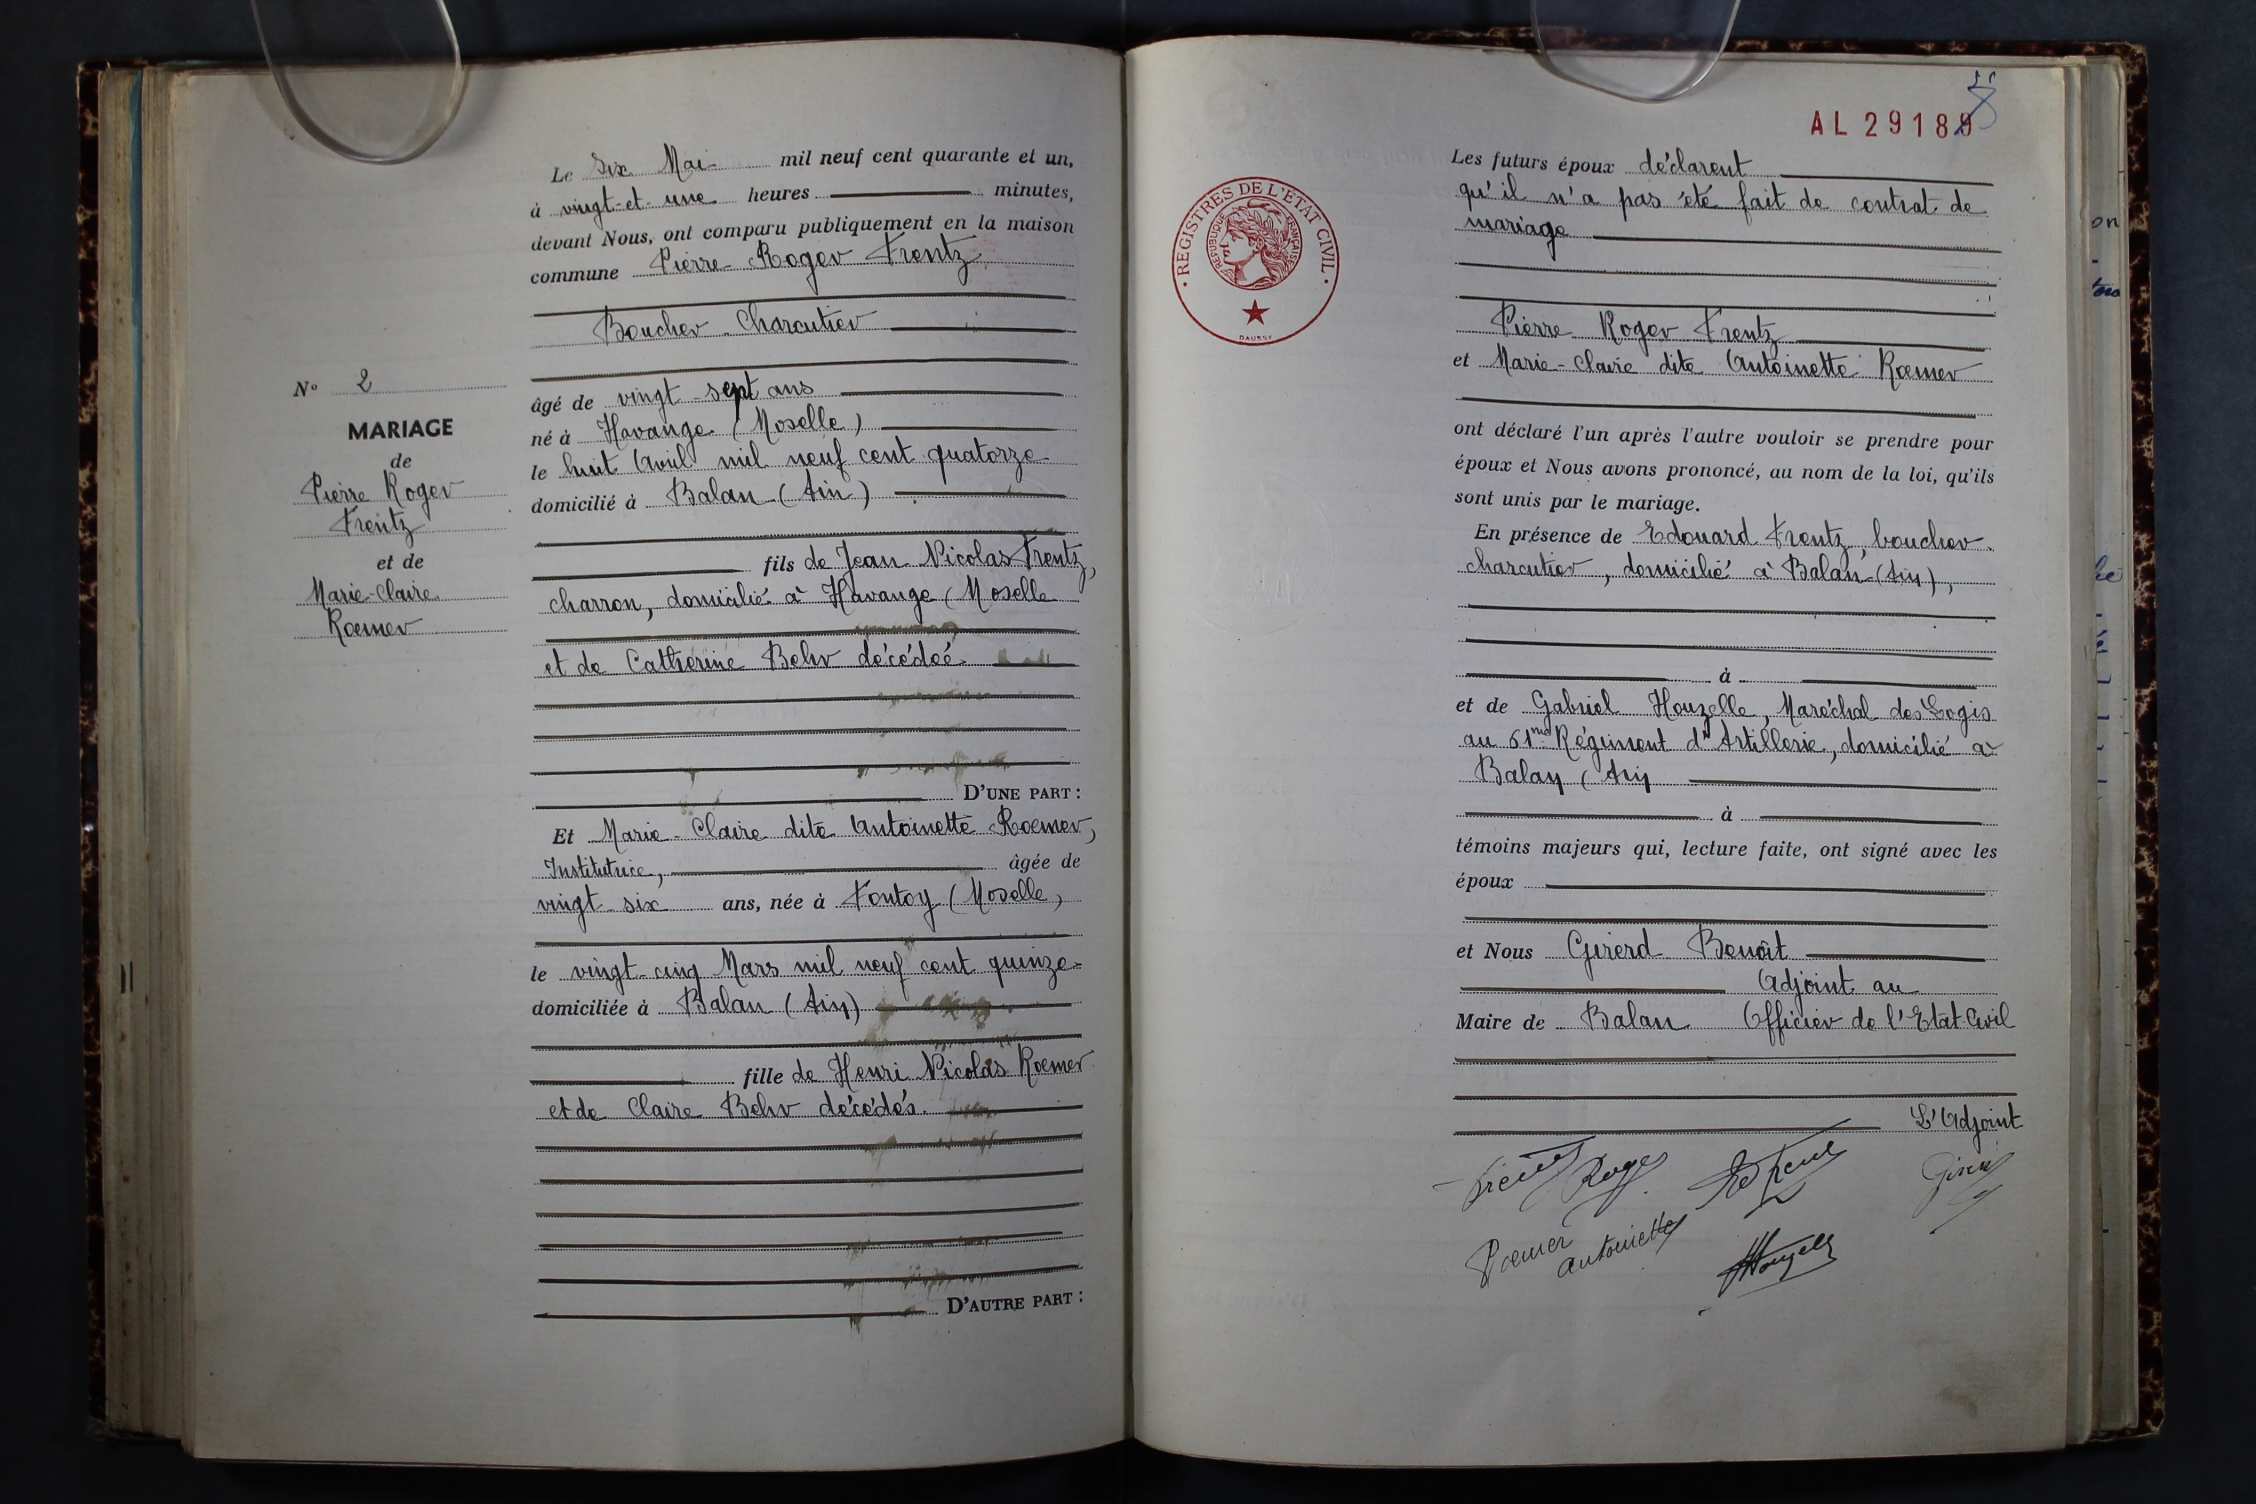 Le Six Mai mil neuf cent quarante et un,
à vingt-et-une heures minutes,
devant Nous, ont comparu publiquement en la maison
commune Pierre Roger Frentz
Boucher Charcutier
âgé de vingt-sept ans
né à Havange (Moselle)
le huit Avril mil neuf cent quatorze
domicilié à Balan (Ain)
fils de Jean Nicolas Frentz,
charron, domicilié à Havange (Moselle
et de Catherine Behr décédée
D'UNE PART :
Et Marie-Claire dite Antoinette Roemer,
Institutrice, âgée de
vingt-six ans, née à Fontoy (Moselle)
le vingt-cinq Mars mil neuf cent quinze
domiciliée à Balan (Ain)
fille de Henri Nicolas Roemer
et de Claire Behr décédés.
D'AUTRE PART :
N° 2
MARIAGE
de
Pierre Roger
Frentz
et de
Marie-Claire
Roemer
AL 2918
REGISTRES DE L'ÉTAT CIVIL
RÉPUBLIQUE FRANÇAISE
DAUSSY
Les futurs époux déclarent
qu'il n'a pas été fait de contrat de
mariage
Pierre Roger Frentz
et Marie-Claire dite Antoinette Roemer
ont déclaré l'un après l'autre vouloir se prendre pour
époux et Nous avons prononcé, au nom de la loi, qu'ils
sont unis par le mariage.
En présence de Edouard Frentz, boucher
charcutier, domicilié à Balan (Ain),
à
et de Gabriel Houzelle, Maréchal des Logis
au 61me Régiment d'Artillerie, domicilié à
Balan (Ain
à
témoins majeurs qui, lecture faite, ont signé avec les
époux
et Nous Girerd Benoît
Adjoint au
Maire de Balan Officier de l'Etat-Civil
L'Adjoint
Frentz Roger
Girerd
Roemer
Antoinette
Houzelle